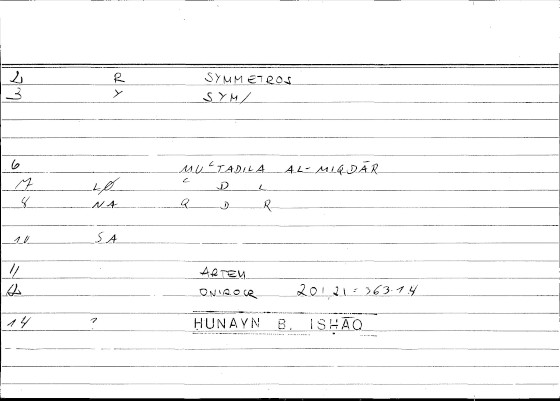 2 R SYMMETROS
3 Y SYM/
6 MUʿTADILA AL-MIQDĀR
7 LØ ʿ D L
8 NA Q D R
10 SA
11 ARTEM
12 ONIROCR 201,21 = 363.14
14 ? HUNAYN B. ISHĀQ